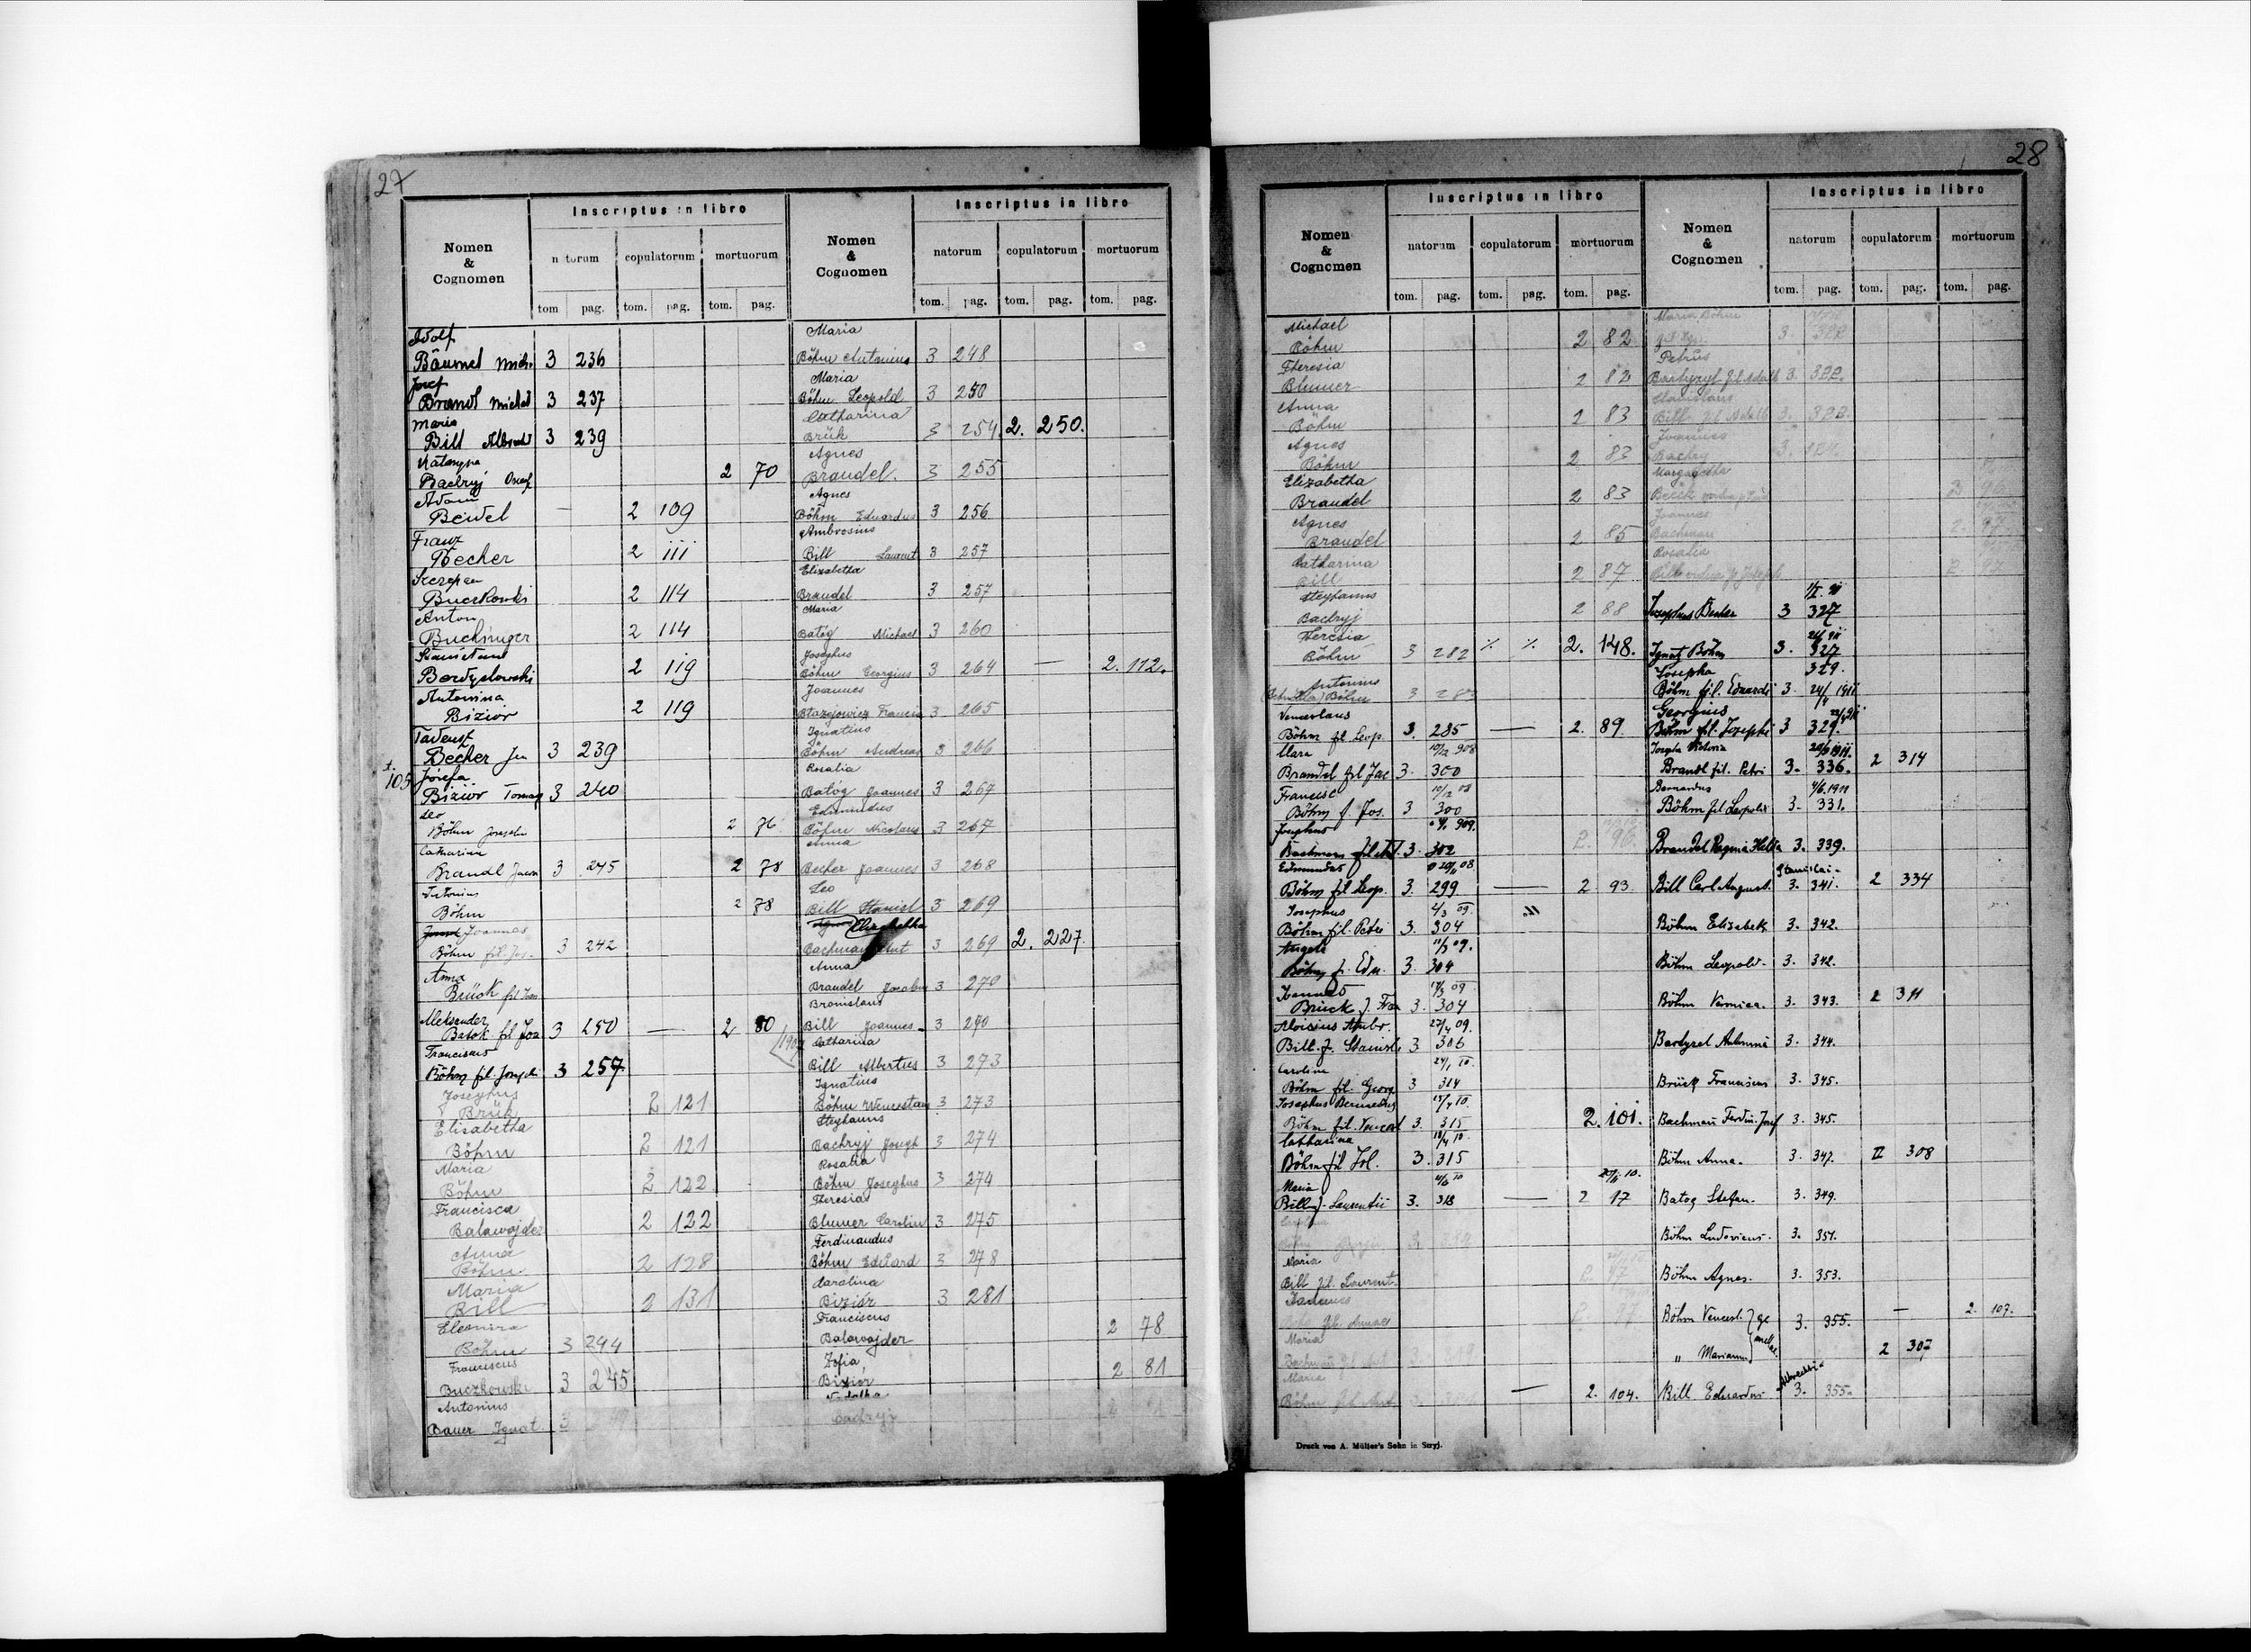 27
Nomen & Cognomen
Inscriptus in libro
natorum copulatorum mortuorum
tom. pag. tom. pag. tom. pag.
Adolf
Bäumel Mich. 3 236
Josef
Brandl Michal 3 237
Maria
Bill Albrecht 3 239
Katarzyna
Badryj Onuf 2 70
Adam
Beidel — 2 109
Franz
Becher 2 111
Szczepan
Buczkowski 2 114
Anton
Buchinger 2 114
Stanisław
Berdysłowski 2 119
Antonina
Bizior 2 119
Tadeusz
Becher Jn 3 239
t. 105
Józefa
Bizior Tomasz 3 240
Leo
Böhm Josephi 2 76
Catharina
Brandl Jacob 3 245 2 78
Antonius
Böhm 2 78
Joannes
Böhm fil. Jos. 3 242
Anna
Brück fil Joan
Aleksander
Batok fil Joa 3 250 — 2 80
1907
Franciscus
Böhm fil. Joseph 3 257
Josephus
Brük 2 121
Elisabetha
Böhm 2 121
Maria
Böhm 2 122
Francisca
Balawajder 2 122
Anna
Böhm 2 128
Maria
Bill 2 131
Eleonora
Böhm 3 244
Franciscus
Buczkowski 3 245
Antonius
Bauer Ignat 3
Nomen & Cognomen
Inscriptus in libro
natorum copulatorum mortuorum
tom. pag. tom. pag. tom. pag.
Maria
Böhm Antonius 3 248
Maria
Böhm Leopold 3 250
Catharina
Brük 3 254. 2. 250.
Agnes
Brandel. 3 255
Agnes
Böhm Eduardus 3 256
Ambrosius
Bill Laurent 3 257
Elizabetha
Brandel 3 257
Maria
Batóg Michael 3 260
Josephus
Böhm Georgius 3 264 — 2. 112.
Joannes
Błazejowicz Francis 3 265
Ignatius
Böhm Andreas 3 266
Rosalia
Batóg Joannes 3 267
Edmundus
Böhm Nicolaus 3 267
Anna
Becher Joannes 3 268
Leo
Bill Stanisl 3 269
Elizabetha
Bachman Ant 3 269 2. 227.
Anna
Brandel Jacobus 3 270
Bronislaus
Bill Joannes 3 270
Catharina
Bill Albertus 3 273
Ignatius
Böhm Wenceslaus 3 273
Stephanus
Bachryj Joseph 3 274
Rosalia
Böhm Josephus 3 274
Theresia
Blumer Carolin 3 275
Ferdinandus
Böhm Eduard 3 278
Carolina
Bizior 3 281
Franciscus
Balawajder 2 78
Zofia
Bizior 2 81
Badryj
28
Nomen & Cognomen
Inscriptus in libro
natorum copulatorum mortuorum
tom. pag. tom. pag. tom. pag.
Michael
Böhm 2 82
Theresia
Blumer 2 82
Anna
Böhm 2 83
Agnes
Böhm 2 83
Elizabetha
Brandel 2 83
Agnes
Brandel 2 85
Catharina
Bill 2 87
Stephanus
Bachryj 2 88
Theresia
Böhm 3 282 % % 2. 148.
Antonius
Böhm 3
Venceslaus
Böhm fil Leop. 3. 285 — 2. 89
Clara 10/12 908
Brandel fil Jac 3. 300
Francisc 10/12 08
Böhm f Jos. 3 300
Josephus 909.
Bachman fil Ad. 3. 302 2. 96
Edmundus 08
Böhm fil Leop. 3. 299 — 2 93
Josephus 2/3 09.
Böhm fil. Petri 3. 304
Angela 11/3 09.
Böhm f. Edu. 3. 304
Joannes 17/3 09
Brück f. Fra 3. 304
Aloisius Ambr. 27/4 09.
Bill. f. Stanisl. 3 306
Carolina 24/1 10.
Böhm fil. Georg 3 314
Josephus Bernardus 15/4 10.
Böhm fil. Vencesl 3. 315 2. 101.
Catharina 18/4 10.
Böhm fil Jol. 3. 315
Maria
Bill f. Laurentii 3. 318 — 2 17
Maria
Bill fil. Laurent. 2. 97
Joannes
fil. Annae 2 97
Maria
Bachman 3. 319
Maria
Böhm fil. Ant. 3. — 2. 104.
Druck von A. Müller's Sohn in Stryj.
Nomen & Cognomen
Inscriptus in libro
natorum copulatorum mortuorum
tom. pag. tom. pag. tom. pag.
Maria Böhm
3. 322
Petrus
Bartyzyl fil Adalb 3. 322.
Stanislaus
Bill fil Adalb 3. 322.
Joannes
Bachry 3.
Margaretha
Joannes
Bachman 2. 97
Rosalia
Bill 2. 97
Josephus Becher 3 327
Ignatz Böhm 3. 327
Josepha 329.
Böhm fil. Eduardi 3. 24/4 1911
Georgius
Böhm fil. Josephi 3 329.
Josepha Victoria
Brandl fil. Petri 3. 336. 2 314
Bernardus 4/6.1911
Böhm fil Leopoldi 3. 331.
Brandel Regina Hella 3. 339.
Stanislai
Bill Carl August. 3. 341. 2 334
Böhm Elisabeth 3. 342.
Böhm Leopold 3. 342.
Böhm Veronica. 3. 343. 2 311
Bardyzel Antonina 3. 344.
Brück Franciscus 3. 345.
Bachman Ferdin. Josef 3. 345.
Böhm Anna. 3. 347. II 308
Batog Stefan. 3. 349.
Böhm Ludovicus. 3. 351.
Böhm Agnes. 3. 353.
Böhm Vencesl. } ge 3. 355. — 2. 107.
„ Marianna } melli. 2 307
Albrechti
Bill Eduardus 3. 355.